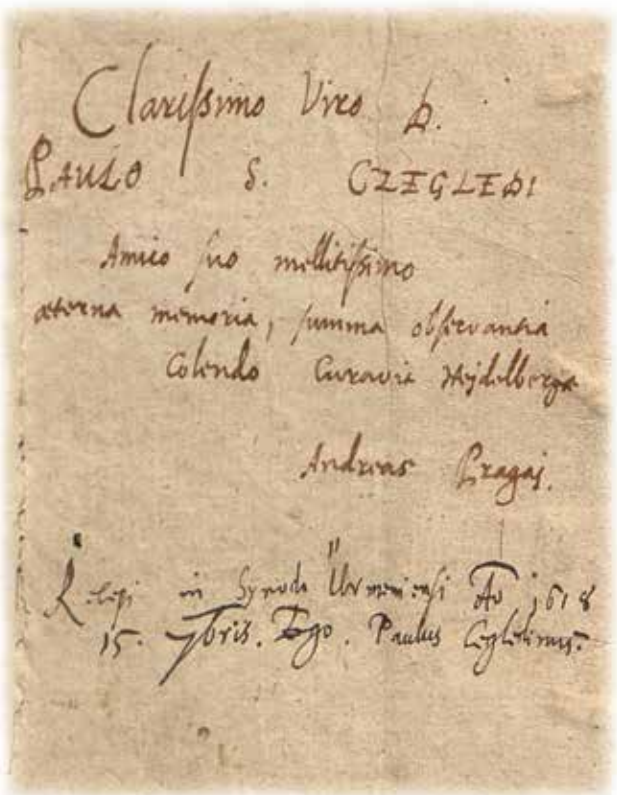 Clarissimo Viro D.
PAULO S. CZEGLEDI
Amico suo mellitissimo
æterna memoria, summa observantia
Colendo Curavit Heidelbergæ
Andreas Pragai.
in Synodo Ao 1618
15. 7bris. Ego. Paulus